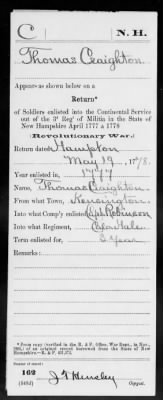 C N. H.
Thomas Craighton
Appears as shown below on a
Return*
of Soldiers enlisted into the Continental Service
out of the 3d Reg't of Militia in the State of
New Hampshire April 1777 a 1778
Revolutionary War:
Return dated Hampton
May 19, 1778.
Year enlisted in, 1777
Name, Thomas Craighton
From what Town, Kensington
Into what Comp'y enlisted Capt Robinson
Into what Regiment, Colo Hale
Term enlisted for, 3 Year
Remarks:
*From copy (verified in the R. & P. Office, War Dept., in Nov.,
of an original record borrowed from the State of New
Hampshire.—R. & P.
Number of record:
162
J F Hensley
Copyist.